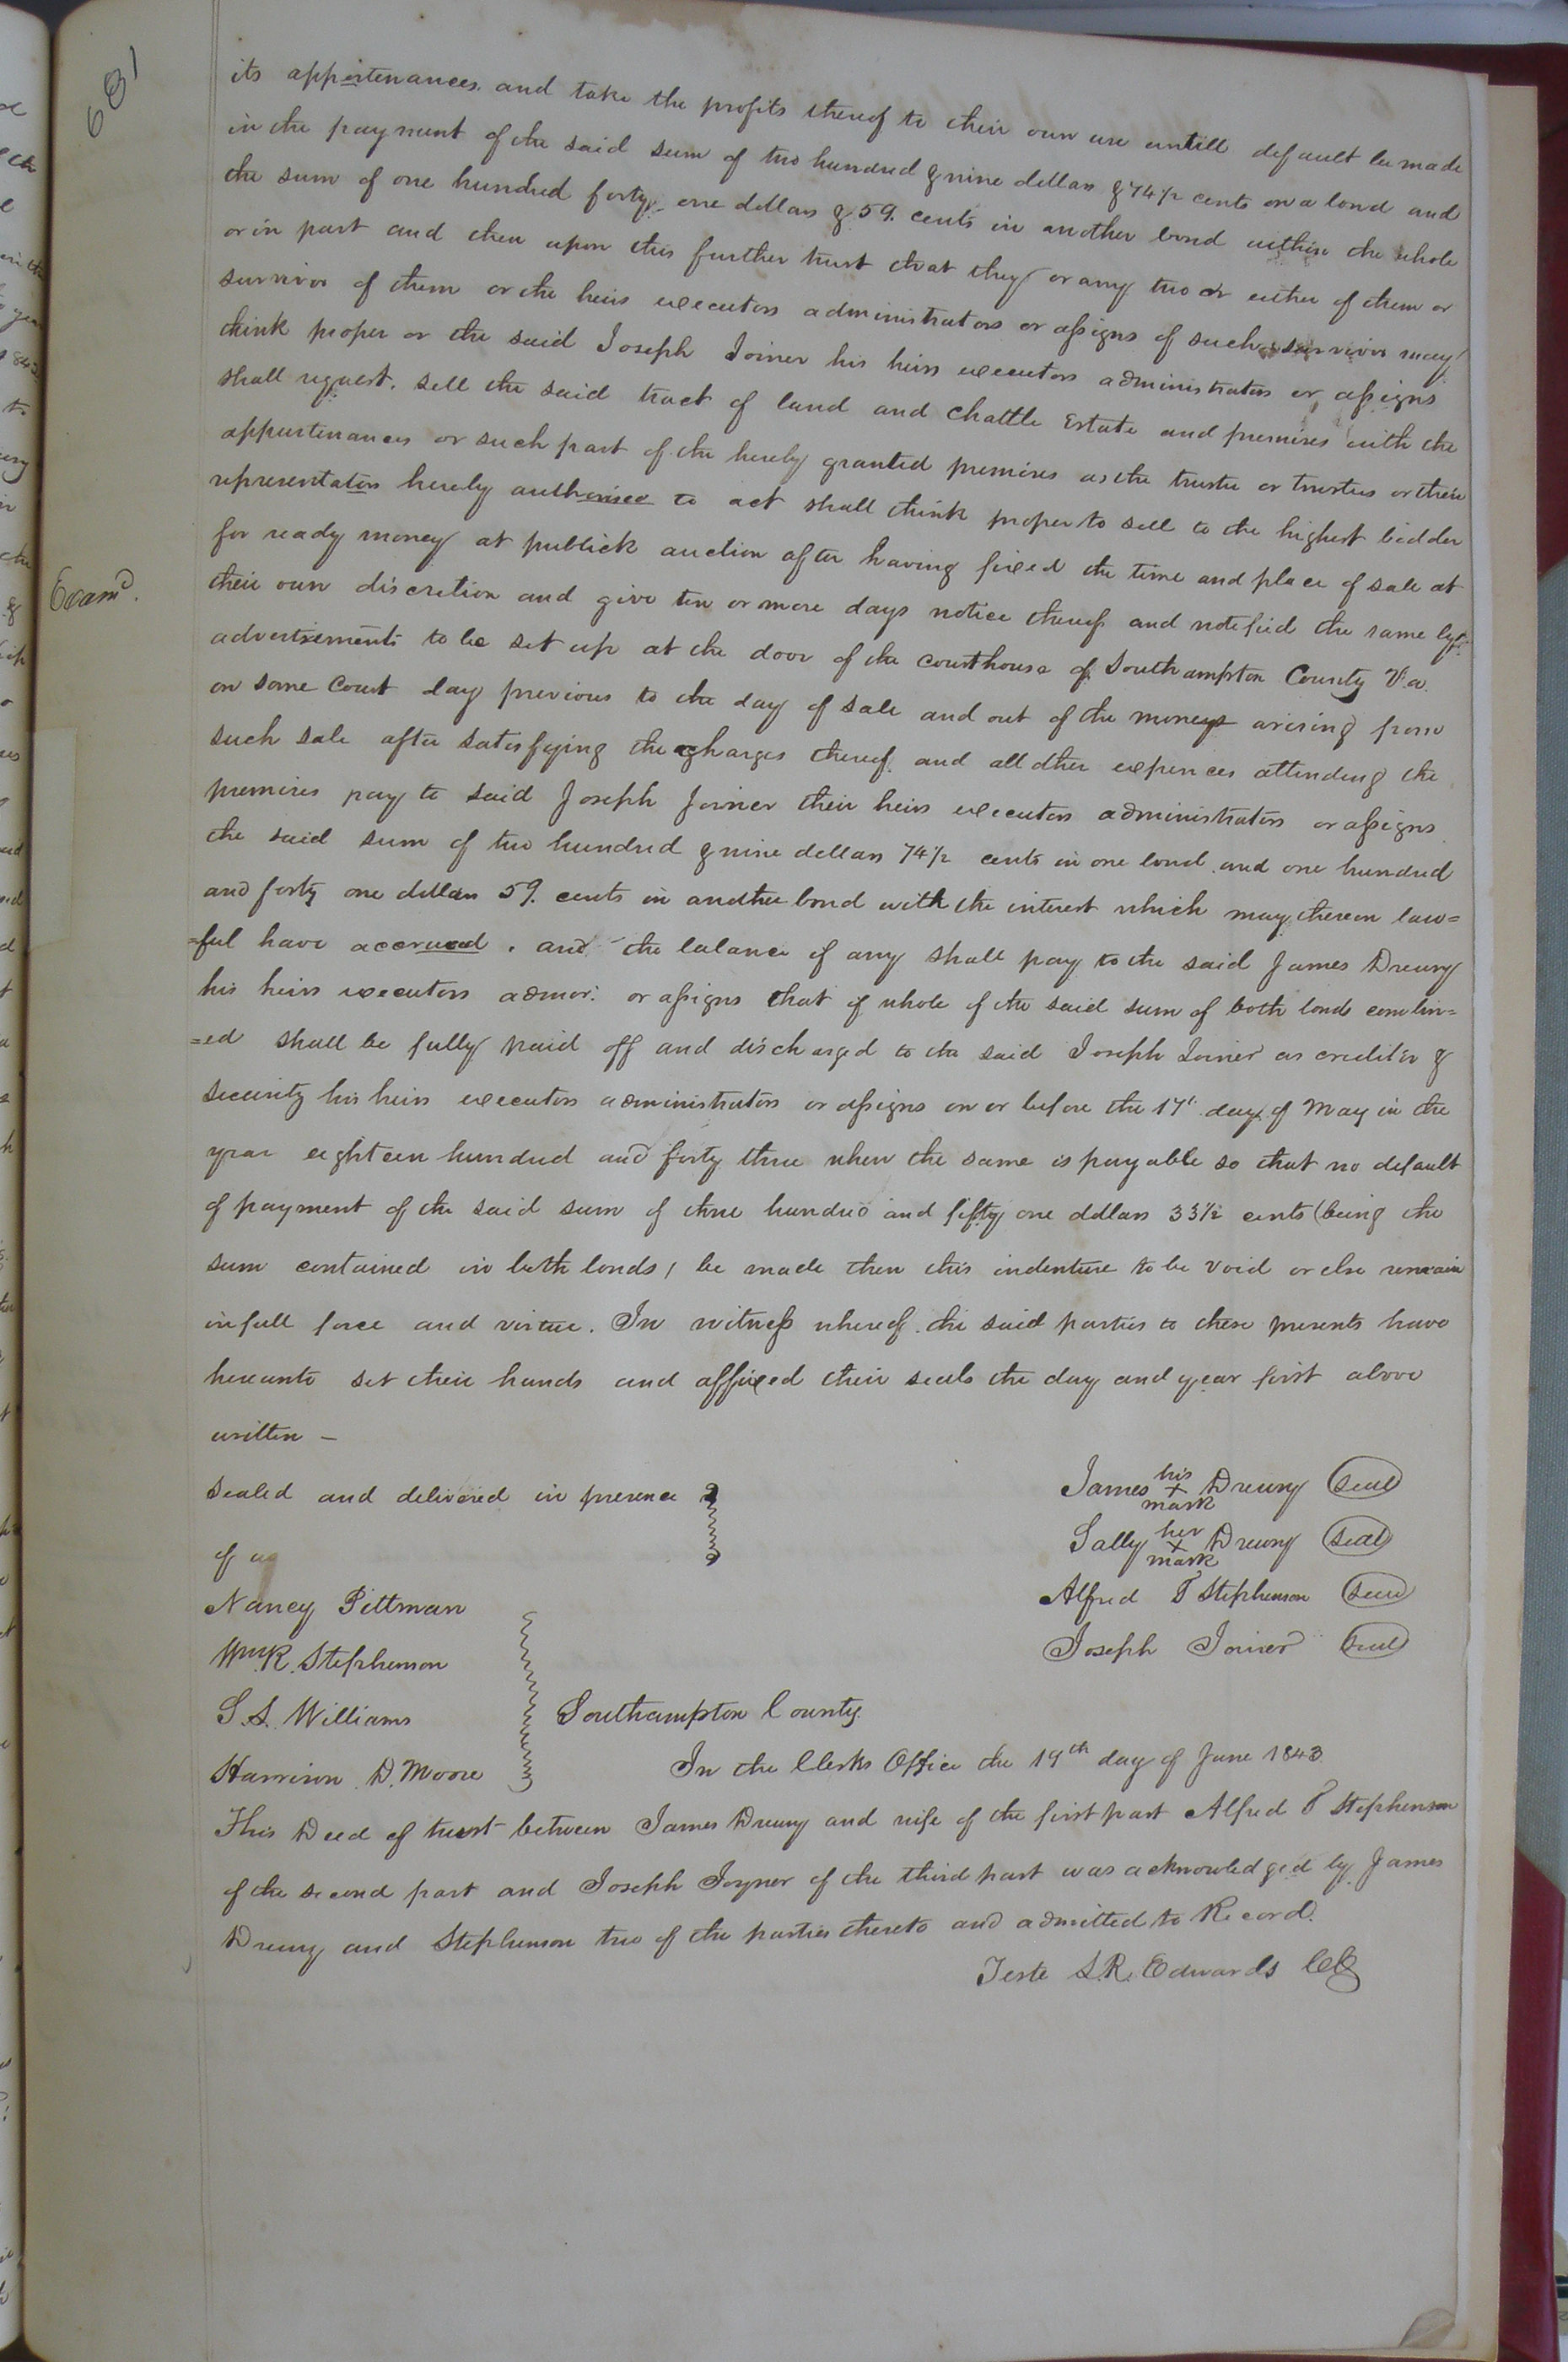 681
its appertenances. and take the profits thereof to their own use untill default be made
in the payment of the said sum of two hundred & nine dollars & 74½ cents on a bond and
the sum of one hundred forty one dollars & 59. cents in another bond within the whole
or in part and then upon this further trust that they or any two or either of them or
survivor of them or the heirs executors administrators or assigns of such survivor may
think proper or the said Joseph Joiner his heirs executors administrators or assigns
shall request. sell the said tract of land and Chattle Estate and premises with the
appurtenances or such part of the hereby granted premises as the trustee or trustees or their
representators hereby authorised to act shall think proper to sell to the highest bidder
for ready money at publick auction after having fixed the time and place of sale at
their own discretion and give ten or more days notice thereof and notefied the same by
advertsements to be set up at the door of the courthouse of Southampton County Va.
on some Court day previous to the day of sale and out of the moneys arising from
such sale after satisfying the charges thereof. and all other expences attending the
premises pay to said Joseph Joiner their heirs executors administrators or assigns
the said sum of two hundred & nine dollars 74½ cents in one bond. and one hundred
and forty one dollars 59. cents in another bond with the interest which may thereon law=
=ful have accrued. and the balance if any shall pay to the said James Drewry
his heirs executors admor: or assigns that if whole of the said sum of both bonds combin=
=ed shall be fully paid off and discharged to the said Joseph Joiner as creditor &
security his heirs executors administrators or assigns on or before the 17t day of May in the
year eighteen hundred and forty three when the same is payable so that no default
of payment of the said sum of three hundred and fifty one dollars 33½ cents (being the
sum contained in both bonds) be made then this indenture to be void or else remain
in full force and virtue. In witness whereof. the said parties to these presents have
hereunto set their hands and affixed their seals the day and year first above
written –
Examd.
Sealed and delivered in presence
of us
James his X mark Drewry (seal)
Sally her X mark Drewry (seal)
Alfred T Stephenson (seal)
Joseph Joiner (seal)
Nancy Pittman
Wm R. Stephenson
S. S. Williams
Harrison D. Moore
Southampton County.
In the Clerks Office the 19th day of June 1843
This Deed of trust between James Drewry and wife of the first part Alfred T Stephenson
of the second part and Joseph Joyner of the third part was acknowledged by James
Drewry and Stephenson two of the parties thereto and admitted to Record.
Teste S.R. Edwards